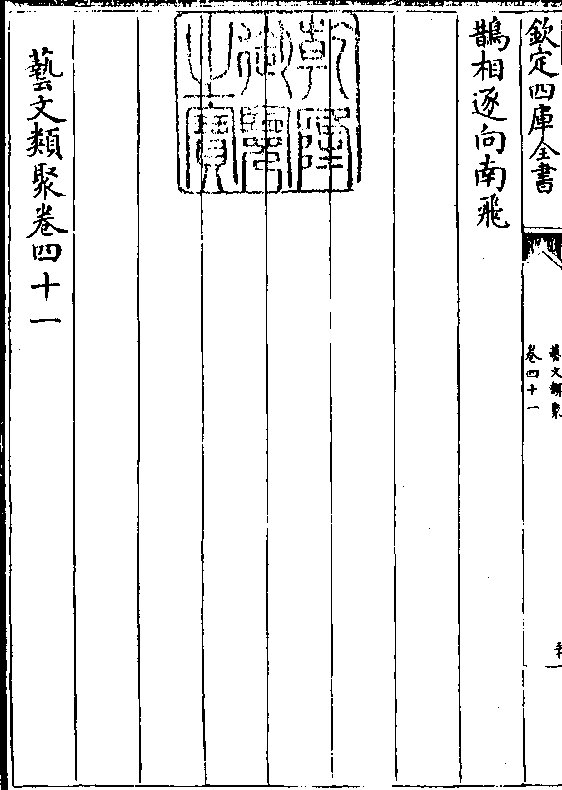 欽定四庫全書
藝文類聚
卷四十一
鵲相逐向南飛
乾隆御覽之寶
藝文類聚卷四十一